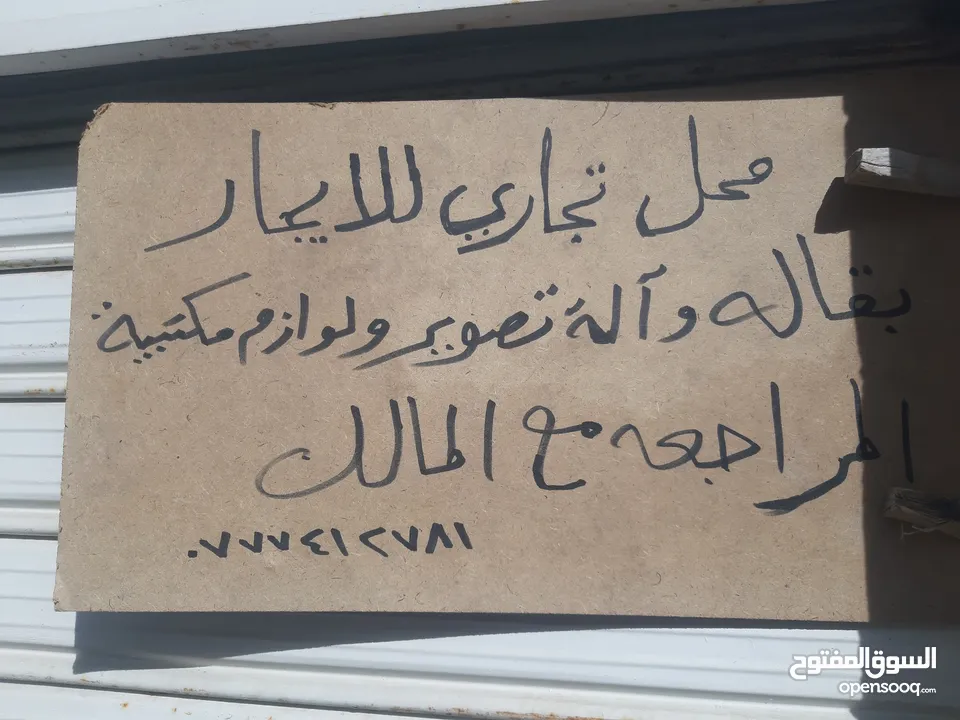 محل تجاري للايجار
بقاله وآلة تصوير ولوازم مكتبية
المراجعه مع المالك
٠٧٧٧٤١٢٧٨١
السوق المفتوح
opensooq.com